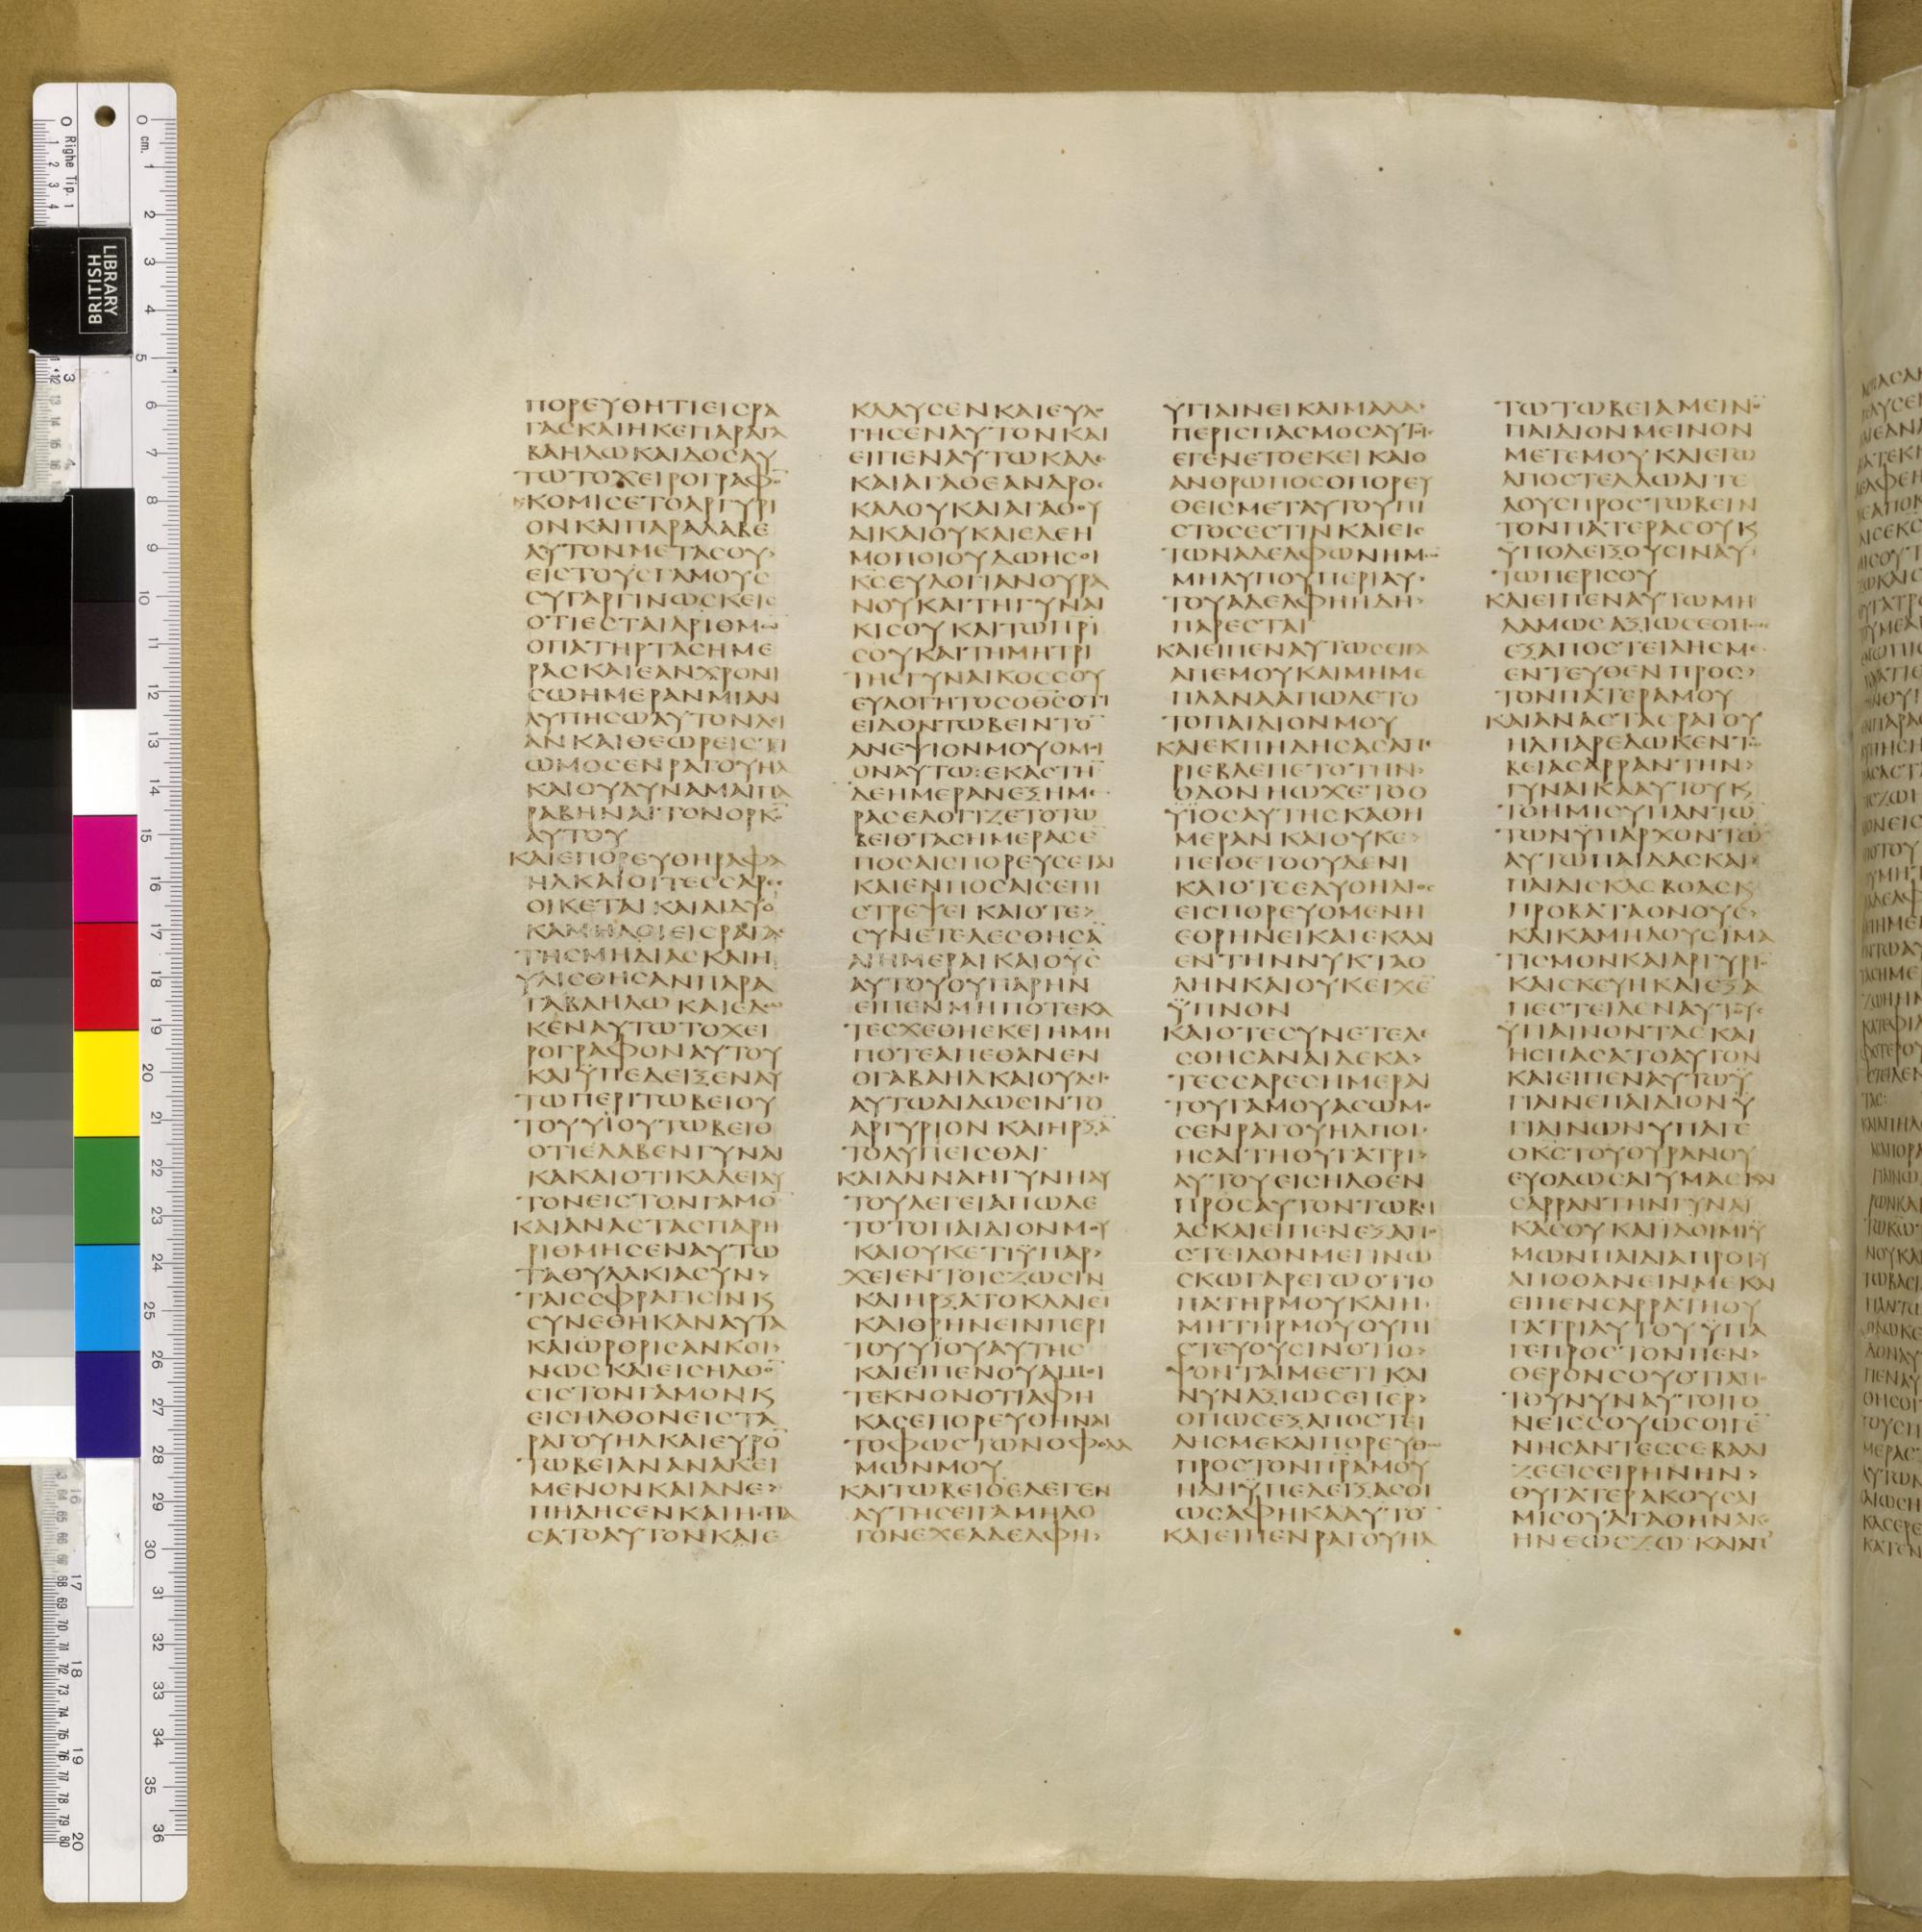 ΠΟΡΕΥΘΗΤΙΕΙϹΡΑ
ΓΑϹΚΑΙΗΚΕΠΑΡΑΓΑ
ΒΑΗΛΩΚΑΙΔΟϹΑΥ
ΤΩΤΟΧΕΙΡΟΓΡΑΦΟ̅
ΚΟΜΙϹΕΤΟΑΡΓΥΡΙ
ΟΝΚΑΙΠΑΡΑΛΑΒΕ
ΑΥΤΟΝΜΕΤΑϹΟΥ>
ΕΙϹΤΟΥϹΓΑΜΟΥϹ
ϹΥΓΑΡΓΙΝΩϹΚΕΙϹ
ΟΤΙΕϹΤΑΙΑΡΙΘΜΩ̅
ΟΠΑΤΗΡΤΑϹΗΜΕ
ΡΑϹΚΑΙΕΑΝΧΡΟΝΙ
ϹΩΗΜΕΡΑΝΜΙΑΝ
ΛΥΠΗϹΩΑΥΤΟΝΛΙ
ΑΝΚΑΙΘΕΩΡΕΙϹΤΙ
ΩΜΟϹΕΝΡΑΓΟΥΗΛ
ΚΑΙΟΥΔΥΝΑΜΑΙΠΑ
ΡΑΒΗΝΑΙΤΟΝΟΡΚΟ̅
ΑΥΤΟΥ
ΚΑΙΕΠΟΡΕΥΘΗΡΑΦΑ
ΗΛΚΑΙΟΙΤΕϹϹΑΡΕϹ
ΟΙΚΕΤΑΙΚΑΙΔΥΟ
ΚΑΜΗΛΟΙΕΙϹΡΑΓΑϹ
ΤΗϹΜΗΔΙΑϹΚΑΙΗ
ΥΛΙϹΘΗϹΑΝΠΑΡΑ
ΓΑΒΑΗΛΩΚΑΙΕΔΩ
ΚΕΝΑΥΤΩΤΟΧΕΙ
ΡΟΓΡΑΦΟΝΑΥΤΟΥ
ΚΑΙΫΠΕΔΕΙΞΕΝΑΥ
ΤΩΠΕΡΙΤΩΒΕΙΟΥ
ΤΟΥΫΙΟΥΤΩΒΕΙΘ
ΟΤΙΕΛΑΒΕΝΓΥΝΑΙ
ΚΑΚΑΙΟΤΙΚΑΛΕΙΑΥ
ΤΟΝΕΙϹΤΟΝΓΑΜΟ̅
ΚΑΙΑΝΑϹΤΑϹΠΑΡΗ
ΡΙΘΜΗϹΕΝΑΥΤΩ
ΤΑΘΥΛΑΚΙΑϹΥΝ>
ΤΑΙϹϹΦΡΑΓΙϹΙΝΚ
ϹΥΝΕΘΗΚΑΝΑΥΤΑ
ΚΑΙΩΡΘΡΙϹΑΝΚΟΙ>
ΝΩϹΚΑΙΕΙϹΗΛΘΟ̅
ΕΙϹΤΟΝΓΑΜΟΝΚ
ΕΙϹΗΛΘΟΝΕΙϹΤΑ
ΡΑΓΟΥΗΛΚΑΙΕΥΡΟ̅
ΤΩΒΕΙΑΝΑΝΑΚΕΙ
ΜΕΝΟΝΚΑΙΑΝΕ>
ΠΗΔΗϹΕΝΚΑΙΗϹΠΑ
ϹΑΤΟΑΥΤΟΝΚΑΙΕ
ΚΛΑΥϹΕΝΚΑΙΕΥΛΟ
ΓΗϹΕΝΑΥΤΟΝΚΑΙ
ΕΙΠΕΝΑΥΤΩΚΑΛΕ
ΚΑΙΑΓΑΘΕΑΝΔΡΟϹ
ΚΑΛΟΥΚΑΙΑΓΑΘΟΥ
ΔΙΚΑΙΟΥΚΑΙΕΛΕΗ
ΜΟΠΟΙΟΥΔΩΗϹΟΙ
ΚϹΕΥΛΟΓΙΑΝΟΥΡΑ
ΝΟΥΚΑΙΤΗΓΥΝΑΙ
ΚΙϹΟΥΚΑΙΤΩΠΡΙ
ϹΟΥΚΑΙΤΗΜΗΤΡΙ
ΤΗϹΓΥΝΑΙΚΟϹϹΟΥ
ΕΥΛΟΓΗΤΟϹΟΘϹΟΤΙ
ΕΙΔΟΝΤΩΒΕΙΝΤΟ̅
ΑΝΕΨΙΟΝΜΟΥΟΜΟΙ
ΟΝΑΥΤΩ:ΕΚΑϹΤΗ
ΔΕΗΜΕΡΑΝΕΞΗΜΕ
ΡΑϹΕΛΟΓΙΖΕΤΟΤΩ
ΒΕΙΘΤΑϹΗΜΕΡΑϹΕ̅
ΠΟϹΑΙϹΠΟΡΕΥϹΕΤΑΙ
ΚΑΙΕΝΠΟϹΑΙϹΕΠΙ
ϹΤΡΕΨΕΙΚΑΙΟΤΕ>
ϹΥΝΕΤΕΛΕϹΘΗϹΑ̅
ΑΙΗΜΕΡΑΙΚΑΙΟΥϹ
ΑΥΤΟΥΟΥΠΑΡΗΝ
ΕΙΠΕΝΜΗΠΟΤΕΚΑ
ΤΕϹΧΕΘΗΕΚΕΙΗΜΗ
ΠΟΤΕΑΠΕΘΑΝΕΝ
ΟΓΑΒΑΗΛΚΑΙΟΥΔΙϹ
ΑΥΤΩΔΙΔΩϹΙΝΤΟ
ΑΡΓΥΡΙΟΝΚΑΙΗΡΞΑ
ΤΟΛΥΠΕΙϹΘΑΙ
ΚΑΙΑΝΝΑΗΓΥΝΗΑΥ
ΤΟΥΛΕΓΕΙΑΠΩΛΕ
ΤΟΤΟΠΑΙΔΙΟΝΜΟΥ
ΚΑΙΟΥΚΕΤΙΫΠΑΡ>
ΧΕΙΕΝΤΟΙϹΖΩϹΙΝ
ΚΑΙΗΡΞΑΤΟΚΛΑΙΕΙ̅
ΚΑΙΘΡΗΝΕΙΝΠΕΡΙ
ΤΟΥΫΙΟΥΑΥΤΗϹ
ΚΑΙΕΙΠΕΝΟΥΑΙΜΟΙ
ΤΕΚΝΟΝΟΤΙΑΦΗ
ΚΑϹΕΠΟΡΕΥΘΗΝΑΙ
ΤΟΦΩϹΤΩΝΟΦΘΑΛ
ΜΩΝΜΟΥ
ΚΑΙΤΩΒΕΙΘΕΛΕΓΕΝ
ΑΥΤΗϹΕΙΓΑΜΗΛΟ
ΓΟΝΕΧΕΑΔΕΛΦΗ>
ΫΓΙΑΙΝΕΙΚΑΙΜΑΛΑ
ΠΕΡΙϹΠΑϹΜΟϹΑΥΤΟΙϹ
ΕΓΕΝΕΤΟΕΚΕΙΚΑΙΟ
ΑΝΘΡΩΠΟϹΟΠΟΡΕΥ
ΘΕΙϹΜΕΤΑΥΤΟΥΠΙ
ϹΤΟϹΕϹΤΙΝΚΑΙΕΙϹ
ΤΩΝΑΔΕΛΦΩΝΗΜΩ̅
ΜΗΛΥΠΟΥΠΕΡΙΑΥ
ΤΟΥΑΔΕΛΦΗΗΔΗ>
ΠΑΡΕϹΤΑΙ
ΚΑΙΕΙΠΕΝΑΥΤΩϹΕΙΓΑ
ΑΠΕΜΟΥΚΑΙΜΗΜΕ
ΠΛΑΝΑΑΠΩΛΕΤΟ
ΤΟΠΑΙΔΙΟΝΜΟΥ
ΚΑΙΕΚΠΗΔΗϹΑϹΑΠΕ
ΡΙΕΒΛΕΠΕΤΟΤΗΝ>
ΟΔΟΝΗΩΧΕΤΟΟ
ΫΙΟϹΑΥΤΗϹΚΑΘΗ
ΜΕΡΑΝΚΑΙΟΥΚΕ>
ΠΕΙΘΕΤΟΟΥΔΕΝΙ
ΚΑΙΟΤΕΕΔΥΟΗΛΙΟϹ
ΕΙϹΠΟΡΕΥΟΜΕΝΗ
ΕΘΡΗΝΕΙΚΑΙΕΚΛΑΙ
ΕΝΤΗΝΝΥΚΤΑΟ
ΛΗΝΚΑΙΟΥΚΕΙΧΕ̅
ΫΠΝΟΝ
ΚΑΙΟΤΕϹΥΝΕΤΕΛΕ
ϹΘΗϹΑΝΑΙΔΕΚΑ>
ΤΕϹϹΑΡΕϹΗΜΕΡΑΙ
ΤΟΥΓΑΜΟΥΑϹΩΜΟ
ϹΕΝΡΑΓΟΥΗΛΠΟΙ
ΗϹΑΙΤΗΘΥΓΑΤΡΙ>
ΑΥΤΟΥΕΙϹΗΛΘΕΝ
ΠΡΟϹΑΥΤΟΝΤΩΒΙ
ΑϹΚΑΙΕΙΠΕΝΕΞΑΠΟ
ϹΤΕΙΛΟΝΜΕΓΙΝΩ
ϹΚΩΓΑΡΕΓΩΟΤΙΟ
ΠΑΤΗΡΜΟΥΚΑΙΗ
ΜΗΤΗΡΜΟΥΟΥΠΙ
ϹΤΕΥΟΥϹΙΝΟΤΙΟ>
ΨΟΝΤΑΙΜΕΕΤΙΚΑΙ
ΝΥΝΑΞΙΩϹΕΠΕΡ>
ΟΠΩϹΕΞΑΠΟϹΤΕΙ
ΛΗϹΜΕΚΑΙΠΟΡΕΥΘΩ
ΠΡΟϹΤΟΝΠΡΑΜΟΥ
ΗΔΗΫΠΕΔΕΙΞΑϹΟΙ
ΩϹΑΦΗΚΑΑΥΤΟ̅
ΚΑΙΕΙΠΕΝΡΑΓΟΥΗΛ
ΤΩΤΩΒΕΙΑΜΕΙΝΟ̅
ΠΑΙΔΙΟΝΜΕΙΝΟΝ
ΜΕΤΕΜΟΥΚΑΙΕΓΩ
ΑΠΟϹΤΕΛΛΩΑΓΓΕ
ΛΟΥϹΠΡΟϹΤΩΒΕΙΝ
ΤΟΝΠΑΤΕΡΑϹΟΥΚ
ΫΠΟΔΕΙΞΟΥϹΙΝΑΥ
ΤΩΠΕΡΙϹΟΥ
ΚΑΙΕΙΠΕΝΑΥΤΩΜΗ
ΔΑΜΩϹΑΞΙΩϹΕΟΠΩϹ
ΕΞΑΠΟϹΤΕΙΛΗϹΜΕ
ΕΝΤΕΥΘΕΝΠΡΟϹ>
ΤΟΝΠΑΤΕΡΑΜΟΥ
ΚΑΙΑΝΑϹΤΑϹΡΑΓΟΥ
ΗΛΠΑΡΕΔΩΚΕΝΤΩ
ΒΕΙΑϹΑΡΡΑΝΤΗΝ>
ΓΥΝΑΙΚΑΑΥΤΟΥΚ
ΤΟΗΜΙϹΥΠΑΝΤΩ̅
ΤΩΝΫΠΑΡΧΟΝΤΩ̅
ΑΥΤΩΠΑΙΔΑϹΚΑΙ>
ΠΑΙΔΙϹΚΑϹΒΟΑϹΚ
ΠΡΟΒΑΤΑΟΝΟΥϹ>
ΚΑΙΚΑΜΗΛΟΥϹΪΜΑ
ΤΙϹΜΟΝΚΑΙΑΡΓΥΡΙΟ̅
ΚΑΙϹΚΕΥΗΚΑΙΕΞΑ
ΠΕϹΤΕΙΛΕΝΑΥΤΟΥϹ
ΫΓΙΑΙΝΟΝΤΑϹΚΑΙ
ΗϹΠΑϹΑΤΟΑΥΤΟΝ
ΚΑΙΕΙΠΕΝΑΥΤΩΫ
ΓΙΑΙΝΕΠΑΙΔΙΟΝΫ
ΓΙΑΙΝΩΝΥΠΑΓΕ
ΟΚϹΤΟΥΟΥΡΑΝΟΥ
ΕΥΟΔΩϹΑΙΥΜΑϹΚΑΙ
ϹΑΡΡΑΝΤΗΝΓΥΝΑΙ
ΚΑϹΟΥΚΑΙΪΔΟΙΜΙΫ
ΜΩΝΠΑΙΔΙΑΠΡΟΤΟΥ
ΑΠΟΘΑΝΕΙΝΜΕΚΑΙ
ΕΙΠΕΝϹΑΡΡΑΤΗΘΥ
ΓΑΤΡΙΑΥΤΟΥΫΠΑ
ΓΕΠΡΟϹΤΟΝΠΕΝ>
ΘΕΡΟΝϹΟΥΟΤΙΑΠΟ
ΤΟΥΝΥΝΑΥΤΟΙΓΟ
ΝΕΙϹϹΟΥΩϹΟΙΓΕ̅
ΝΗϹΑΝΤΕϹϹΕΒΑΔΙ
ΖΕΕΙϹΕΙΡΗΝΗΝ>
ΘΥΓΑΤΕΡΑΚΟΥϹΑΙ
ΜΙϹΟΥΑΓΑΘΗΝΑΚΟ
ΗΝΕΩϹΖΩΚΑΙΑΠ